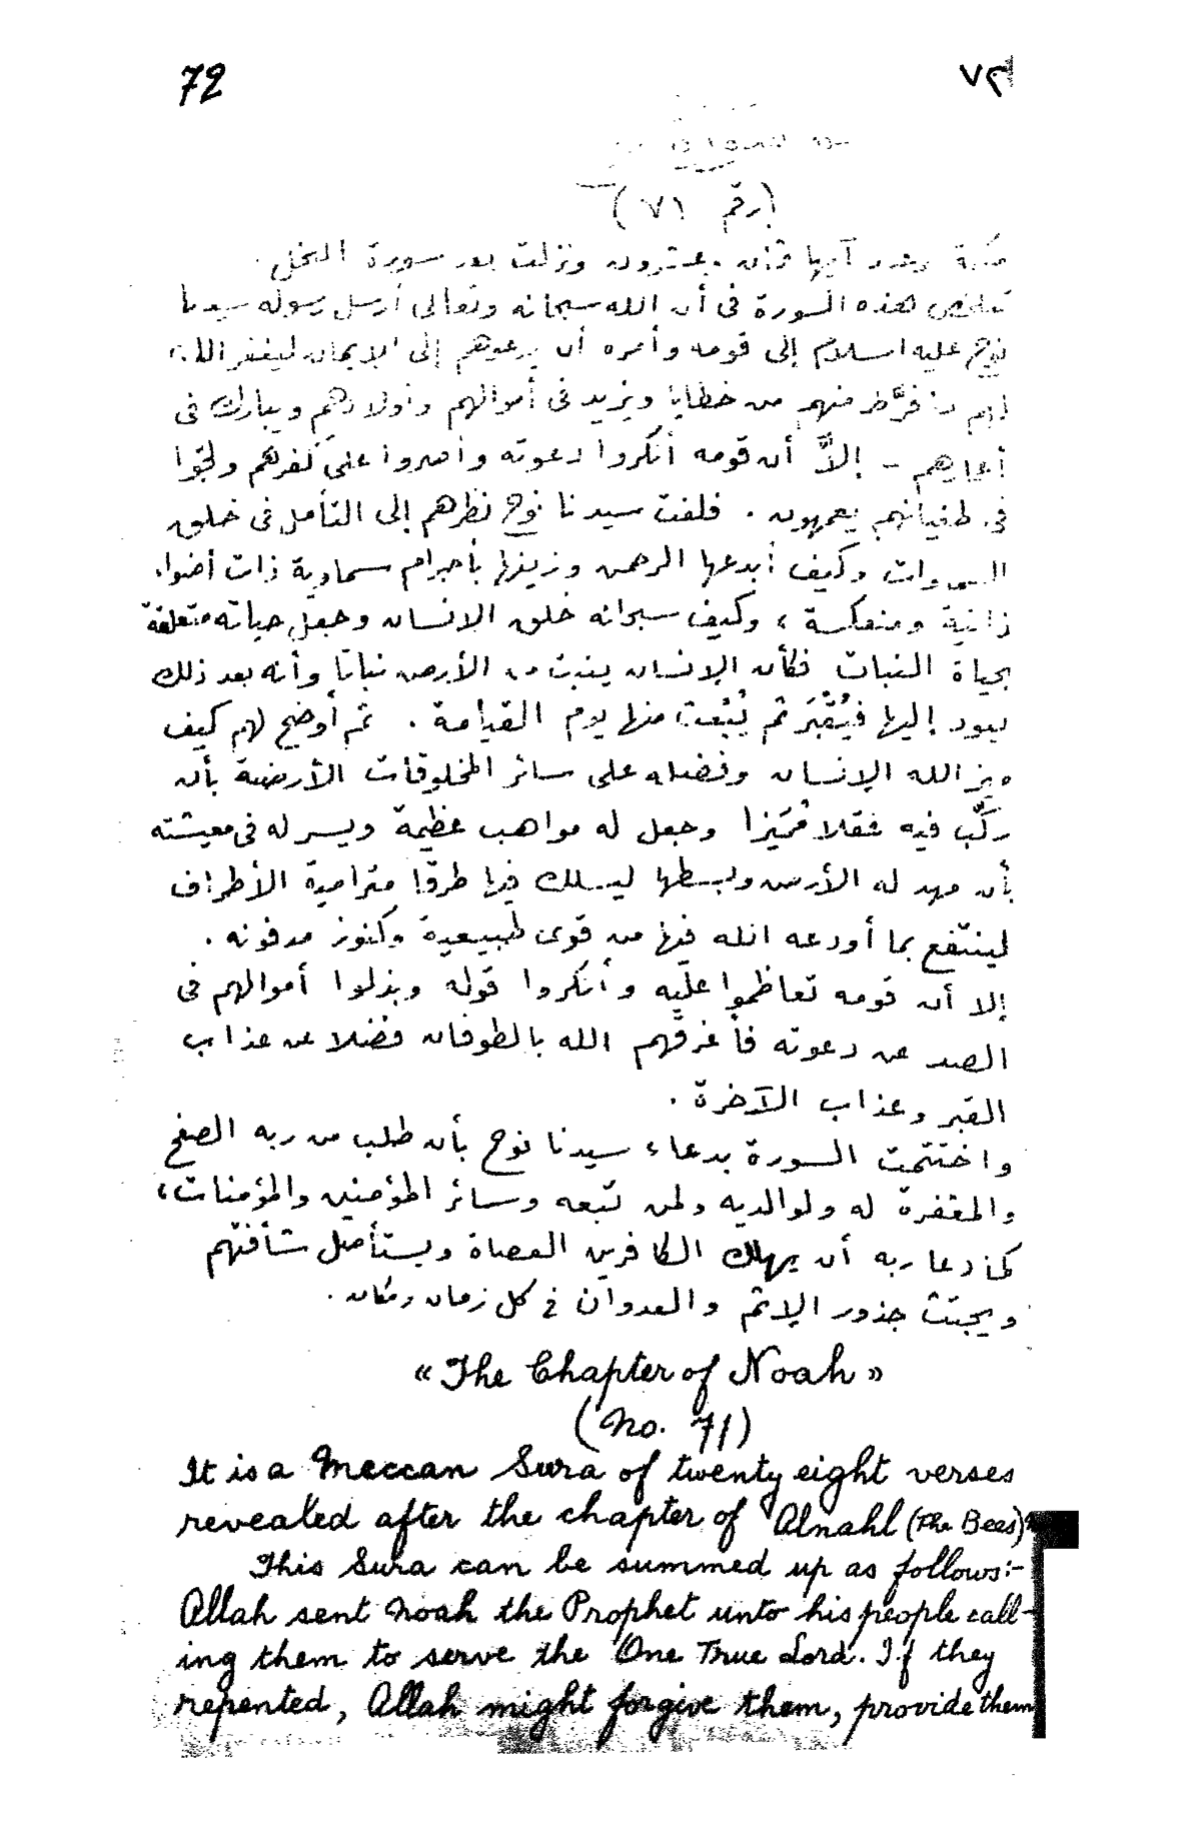 72
٧٢
سورة
(رقم ٧١)
مكية وعدد آيها ثمان وعشرون ونزلت بعد سورة النحل.
تتلخص هذه السورة فى أن الله سبحانه وتعالى أرسل رسوله سيدنا
نوح عليه السلام إلى قومه وأمره أن يدعوهم إلى الإيمان ليغفر الله
لهم ما فرَّط منهم من خطايا ويزيد فى أموالهم وأولادهم ويبارك فى
أعمارهم - إلاَّ أن قومه أنكروا دعوته وأصروا على كفرهم ولجّوا
فى طغيانهم يعمهون . فلفت سيدنا نوح نظرهم إلى التأمل فى خلق
السموات وكيف أبدعها الرحمن وزينها بأجرام سماوية ذات أضواء
ذاتية ومنعكسة ، وكيف سبحانه خلق الانسان وجعل حياته متعلقة
بحياة النبات فكأن الإنسان ينبت من الأرض نباتا وأنه بعد ذلك
يعود إليها فيُقْبَر ثم يُبْعث منها يوم القيامة . ثم أوضح لهم كيف
ميز الله الإنسان وفضله على سائر المخلوقات الأرضية بأن
ركَّب فيه عقلا مُميَزا وجعل له مواهب عظيمة ويسر له فى معيشته
بأن مهد له الأرض وبسطها ليسلك فيها طرقا مترامية الأطراف
لينتفع بما أودعه الله فيها من قوى طبيعية وكنوز مدفونه .
إلا أن قومه تعاظموا عليه وأنكروا قوله وبذلوا أموالهم فى
الصد عن دعوته فأغرقهم الله بالطوفان فضلا عن عذاب
القبر وعذاب الآخرة .
واختتمت السورة بدعاء سيدنا نوح بأن طلب من ربه الصفح
والمغفرة له ولوالديه ولمن تبعه وسائر المؤمنين والمؤمنات،
كما دعا ربه أن يهلك الكافرين العصاة ويستأصل شأفتهم
ويجتث جذور الإثم والعدوان فى كل زمان ومكان .
« The Chapter of Noah »
(No. 71)
It is a Meccan Sura of twenty eight verses
revealed after the chapter of Alnahl (The Bees)
This Sura can be summed up as follows:-
Allah sent Noah the Prophet unto his people call-
ing them to serve the One True Lord. If they
repented, Allah might forgive them, provide them